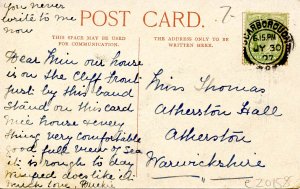 you never
write to me
now
POST CARD.
7-
THIS SPACE MAY BE USED
FOR COMMUNICATION.
THE ADDRESS ONLY TO BE
WRITTEN HERE.
SCARBOROUGH
6.15 PM
JY 30
07
Dear Min our house
is on the Cliff front
just by this band
stand on this card
nice house & every
thing very comfortable
good full view of Sea
it is rough to day
does like it.
much love
Miss Thomas
Atherston Hall
Atherston
Warwickshire